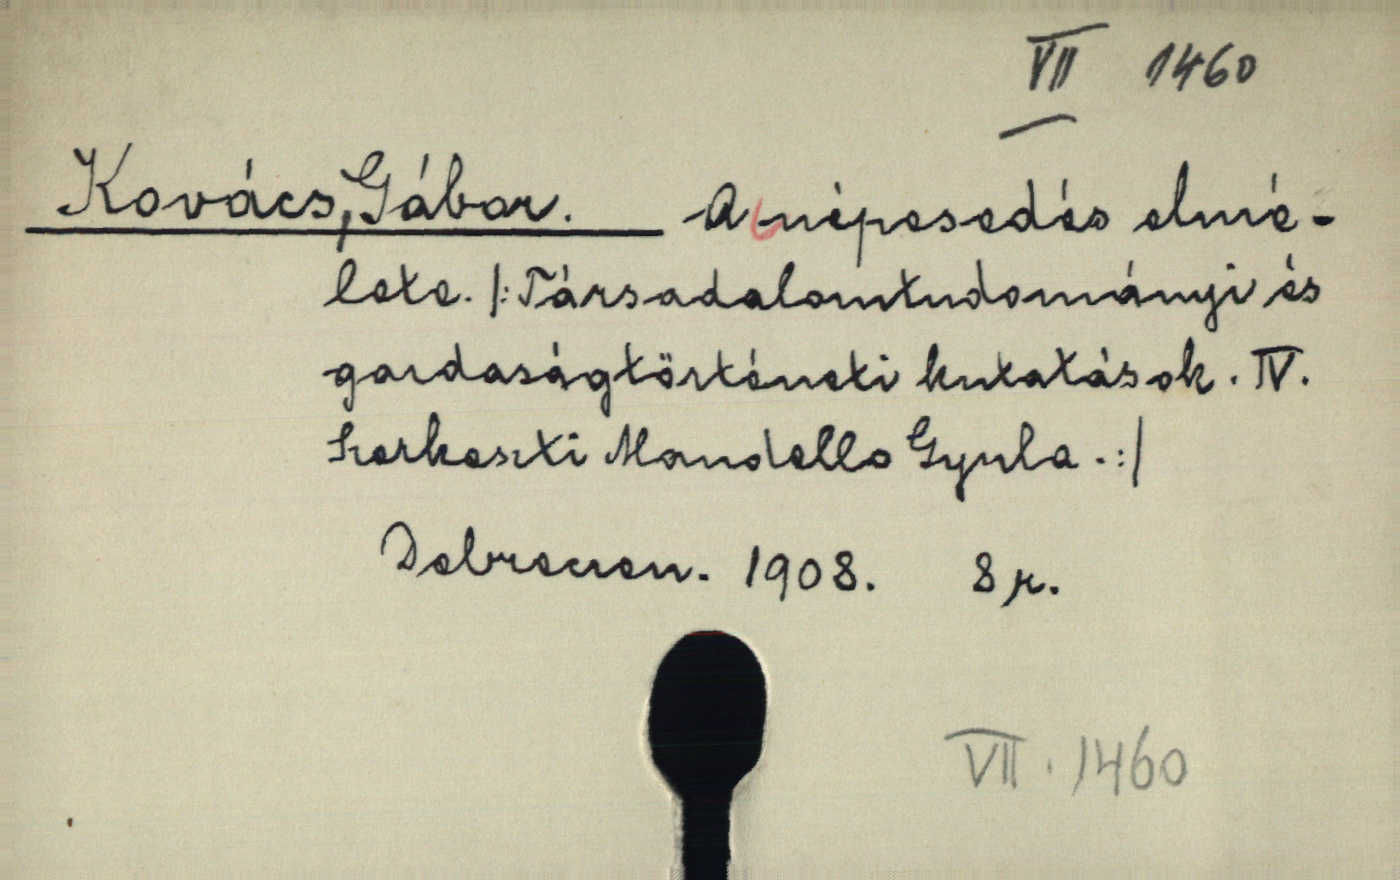 VII 1460
Kovács, Gábor. A népesedés elmé-
lete. /: Társadalomtudományi és
gazdaságtörténeti kutatások. IV.
Szerkeszti Mandello Gyula. :/
Debreczen. 1908. 8 r.
VII. 1460